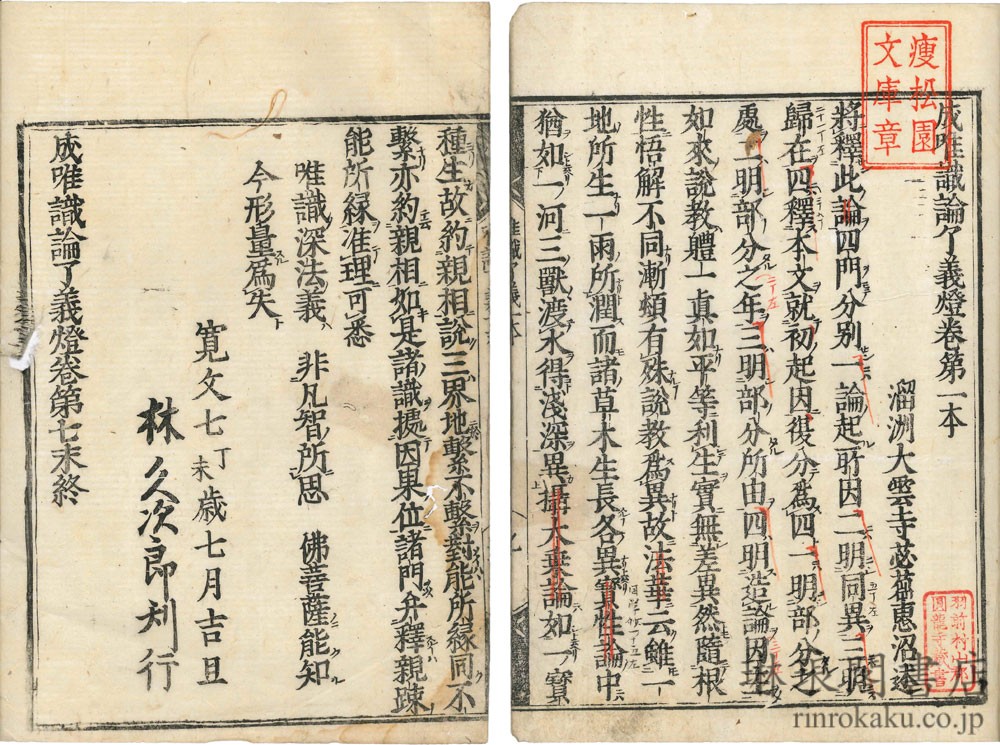 成唯識論了義燈卷第一本
淄洲大雲寺苾蒭惠沼述
將釋此論四門分別一論起所因二明同異三明
歸在四釋本文就初起因復分為四一明部分之
處二明部分之年三明部分所由四明造論因
如來說教體一真如平等利生實無差異然隨根
性悟解不同漸頓有殊說教為異故法華云雖一
地所生一雨所潤而諸草木生長各異實性論中
猶如一河三獸渡水得淺深異攝大乘論如一寶
種生故約親相說三界地繫不繫對能所緣同不
繫亦約親相如是諸識據因果位諸門弁釋親疎
能所緣准理可悉
唯識深法義 非凡智所思 佛菩薩能知
今形量為失
寛文七丁未歳七月吉旦
林久次郎刊行
成唯識論了義燈卷第七末終
瘦松園
文庫章
羽前村山郡
圓龍寺藏書
林泉閣書店
rinrokaku.co.jp